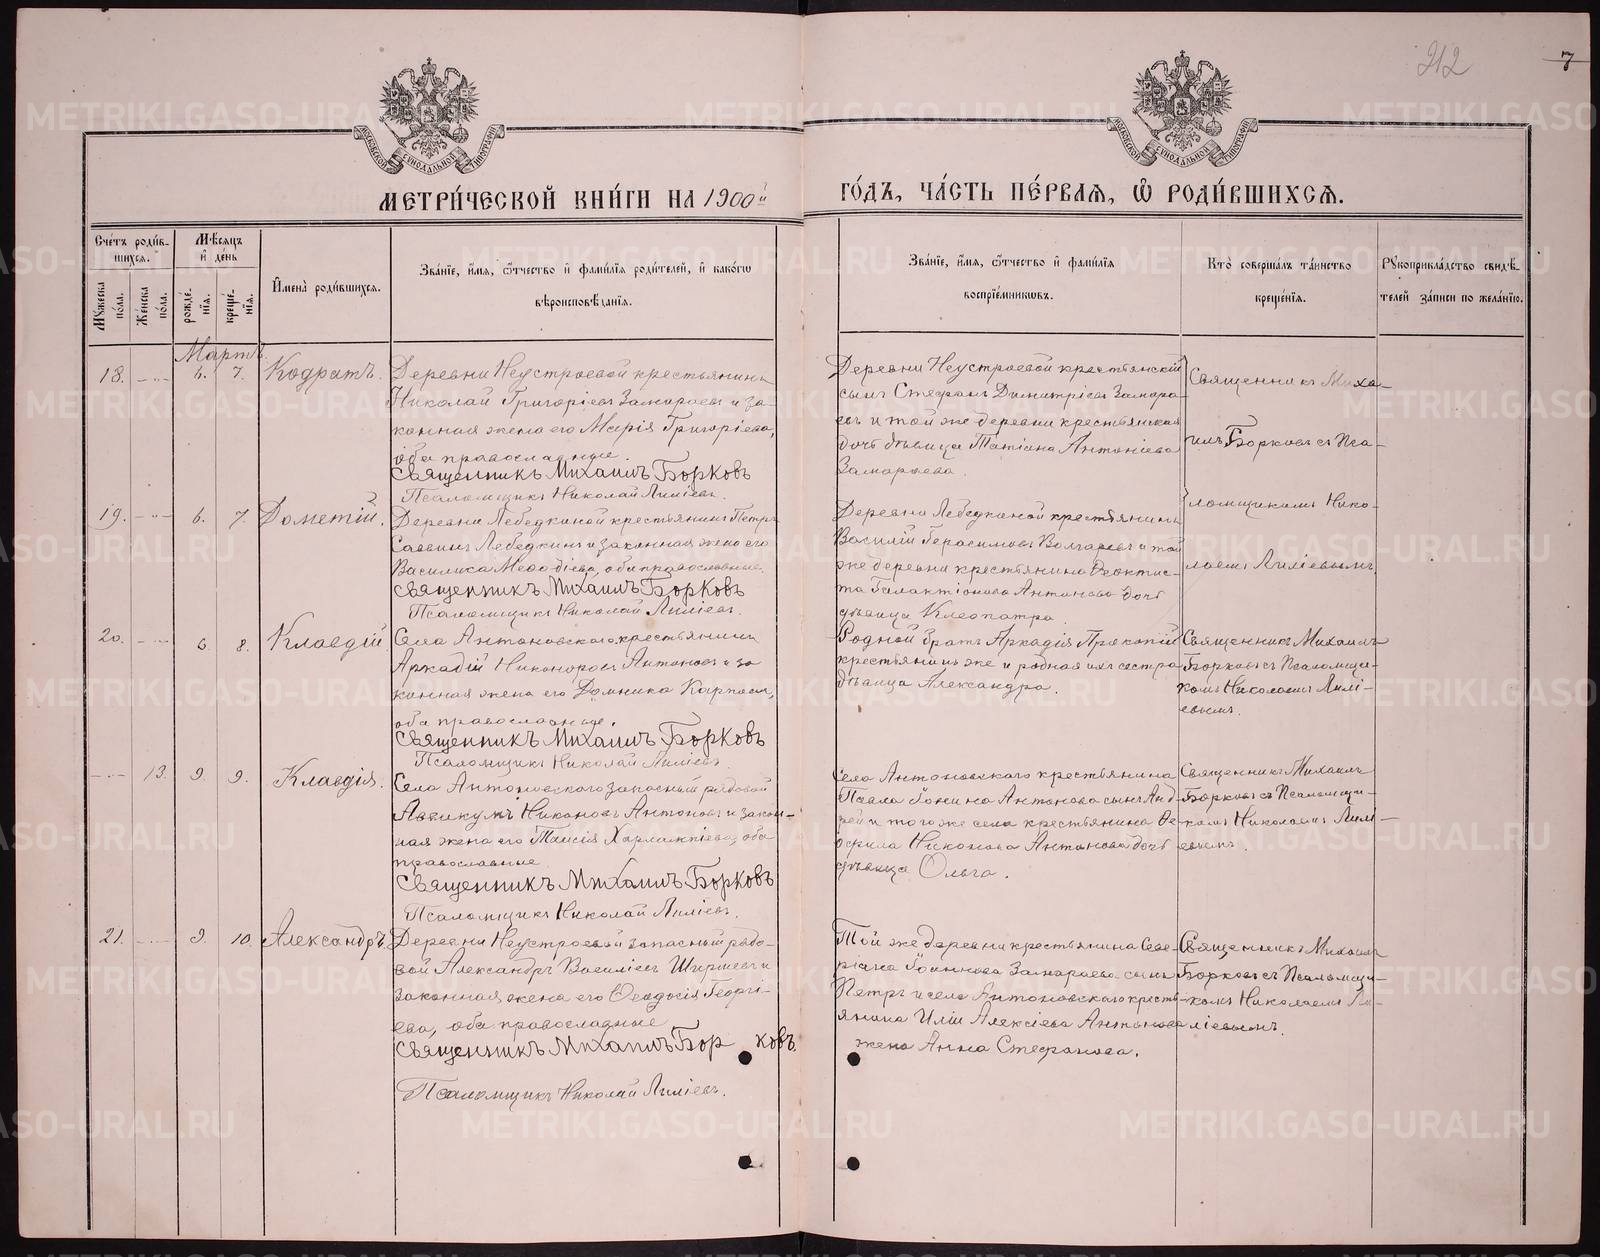 212
7
МЕТРИ́ЧЕСКОЙ КНИ́ГИ НА 1900й
ГО́ДЪ, ЧА́СТЬ ПЕ́РВАѦ, Ѽ РОДИ́ВШИХСѦ.
Сче́тъ роди́в-
шихсѧ.
Мѣ́сѧцъ
и҆ де́нь
Мꙋ́жеска по́ла.
Же́нска по́ла.
рожде́-
нїѧ.
креще́-
нїѧ.
И҆мена̀ роди́вшихсѧ.
Зва́нїе, и҆́мѧ, ѻ҆́тчество и҆ фами́лїѧ роди́телей, и҆ како́гѡ
вѣроисповѣ́данїѧ.
Зва́нїе, и҆́мѧ, ѻ҆́тчество и҆ фами́лїѧ
воспрїе́мникѡвъ.
Кто̀ соверша́лъ та́инство
креще́нїѧ.
Рꙋкоприкла́дство свидѣ́-
телей за́писи по жела́нїю.
Мартъ
18.
6. 7.
Кодратъ.
Деревни Неустроевой крестьянинъ
Николай Григоріевъ Замараевъ и за-
конная жена его Марія Григоріева,
оба православные.
Священникъ Михаилъ Борковъ
Псаломщикъ Николай Лиліевъ.
Деревни Неустроевой крестьянскій
сынъ Стефанъ Димитріевъ Замара-
евъ и той же деревни крестьянская
дочь дѣвица Татіана Антоніева
Замараева.
Священникъ Миха-
илъ Борковъ съ Пса-
ломщикомъ Нико-
лаемъ Лиліевымъ
19.
6. 7.
Дометій.
Деревни Лебедкиной крестьянинъ Петръ
Саввинъ Лебедкинъ и законная жена его
Василиса Меѳодіева, оба православные.
Священникъ Михаилъ Борковъ
Псаломщикъ Николай Лиліевъ.
Деревни Лебедкиной крестьянинъ
Василій Герасимовъ Волгаревъ и той
же деревни крестьянина Ѳеоктис-
та Галактіонова Антонова дочь
дѣвица Клеопатра.
20.
6. 8.
Клавдій
Села Антоновскаго крестьянинъ
Аркадій Никоноровъ Антоновъ и за-
конная жена его Домника Карпова,
оба православные.
Священникъ Михаилъ Борковъ
Псаломщикъ Николай Лиліевъ.
Родной братъ Аркадія Прокопій
крестьянинъ же и родная ихъ сестра
дѣвица Александра.
Священникъ Михаилъ
Борковъ съ Псаломщи-
комъ Николаемъ Лилі-
евымъ.
13.
9. 9.
Клавдія.
Села Антоновскаго запасный рядовой
Аввакумъ Никоновъ Антоновъ и закон-
ная жена его Таисія Харлампіева, оба
православные
Священникъ Михаилъ Борковъ
Псаломщикъ Николай Лиліевъ.
Села Антоновскаго крестьянина
Павла Іонина Антонова сынъ Анд-
рей и того же села крестьянина
Никонова Антонова дочь
дѣвица Ольга.
Священникъ Михаилъ
Борковъ съ Псаломщи-
комъ Николаемъ Лилі-
евымъ.
21.
9. 10.
Александръ.
Деревни Неустроевой запасный рядо-
вой Александръ Василіевъ Ширяевъ и
законная жена его Ѳеодосія Георгі-
ева, оба православные
Священникъ Михаилъ Борковъ.
Псаломщикъ Николай Лиліевъ.
Той же деревни крестьянина Севе-
ріана Іоаннова Замараева сынъ
Петръ и села Антоновскаго кресть-
янина Иліи Алексіева Антонова
жена Анна Стефанова.
Священникъ Михаилъ
Борковъ съ Псаломщи-
комъ Николаемъ Ли-
ліевымъ.